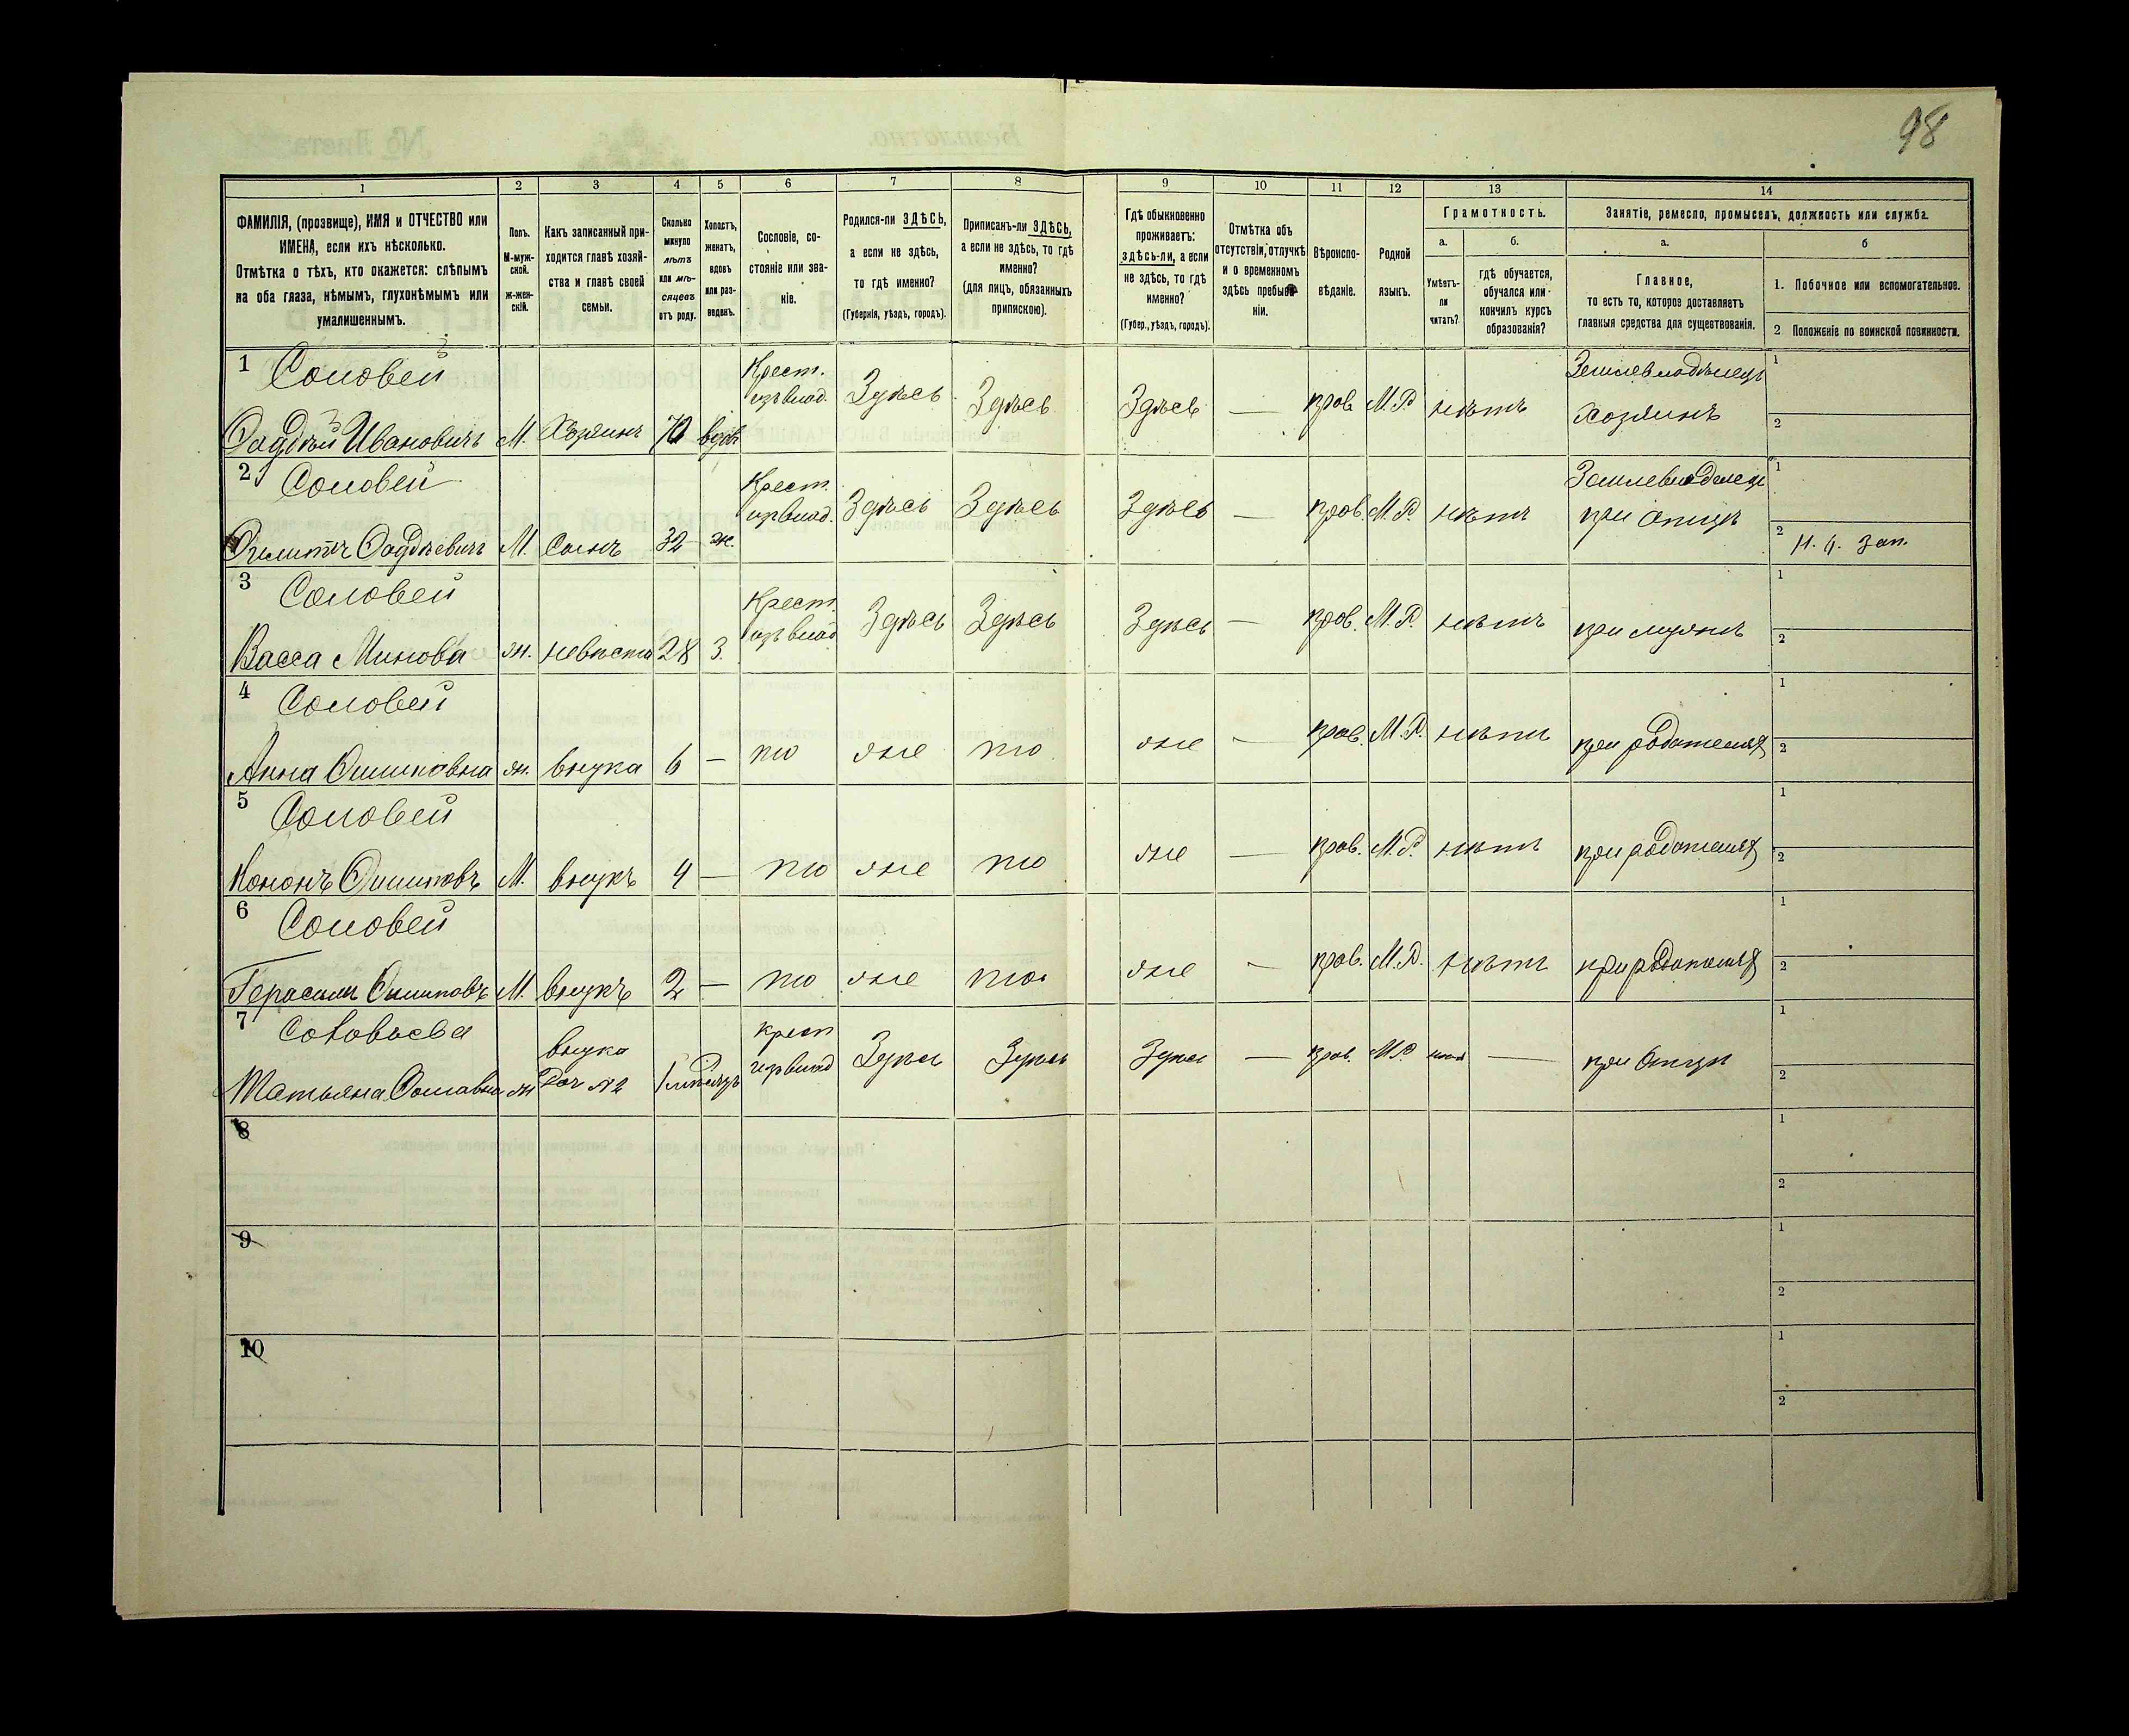 98
1 2 3 4 5 6 7 8 9 10 11 12 13 14
ФАМИЛІЯ, (прозвище), ИМЯ и ОТЧЕСТВО или
ИМЕНА, если ихъ нѣсколько.
Отмѣтка о тѣхъ, кто окажется: слѣпымъ
на оба глаза, нѣмымъ, глухонѣмымъ или
умалишеннымъ.
Полъ.
М-муж-
ской.
ж-жен-
скій.
Какъ записанный при-
ходится главѣ хозяй-
ства и главѣ своей
семьи.
Сколько
минуло
лѣтъ
или мѣ-
сяцевъ
отъ роду.
Холостъ,
женатъ,
вдовъ
или раз-
веденъ.
Сословіе, со-
стояніе или зва-
ніе.
Родился-ли ЗДѢСЬ,
а если не здѣсь,
то гдѣ именно?
(Губернія, уѣздъ, городъ).
Приписанъ-ли ЗДѢСЬ,
а если не здѣсь, то гдѣ
именно?
(для лицъ, обязанныхъ
припискою).
Гдѣ обыкновенно
проживаетъ:
здѣсь-ли, а если
не здѣсь, то гдѣ
именно?
(Губер., уѣздъ, городъ).
Отмѣтка объ
отсутствіи, отлучкѣ
и о временномъ
здѣсь пребыва-
ніи.
Вѣроиспо-
вѣданіе.
Родной
языкъ.
Грамотность.
а.
Умѣетъ-
ли
читать?
б.
гдѣ обучается,
обучался или
кончилъ курсъ
образованія?
Занятіе, ремесло, промыселъ, должность или служба.
а.
Главное,
то есть то, которое доставляетъ
главныя средства для существованія.
б
1. Побочное или вспомогательное.
2 Положеніе по воинской повинности.
1 Соловей Крест. Землевладѣлецъ 1
изъ влад. Здѣсь Здѣсь Здѣсь — прав. М.Р. нѣтъ хозяинъ
Фаддѣй Ивановичъ М. Хозяинъ 70 вдов 2
2 Соловей Крест. Землевладелец 1
изъ влад. Здѣсь Здѣсь Здѣсь — прав. М.Р. нѣтъ при отцѣ
Фаддѣевичъ М. Сынъ 32 ж. 2 Н. Ч. Зап.
3 Соловей Крест. 1
изъ влад Здѣсь Здѣсь Здѣсь — прав. М.Р. нѣтъ при мужѣ
Васса Минова ж. невѣстка 28 З. 2
4 Соловей 1
то же то же — прав. М.Р. нѣтъ при родителях
Анна ж. внучка 6 — 2
5 Соловей 1
то же то же — прав. М.Р. нѣтъ при родителях
Кононъ М. внукъ 4 — 2
6 Соловей 1
то же то же — прав. М.Р. нѣтъ при родителях
Герасимъ М. внукъ 2 — 2
7 Соловьева внучка крест 1
изъ влад Здѣсь Здѣсь Здѣсь — прав. М.Р. — при отцѣ
Татьяна ж Доч №2 1 мѣсяцъ 2
8 1
2
9 1
2
10 1
2